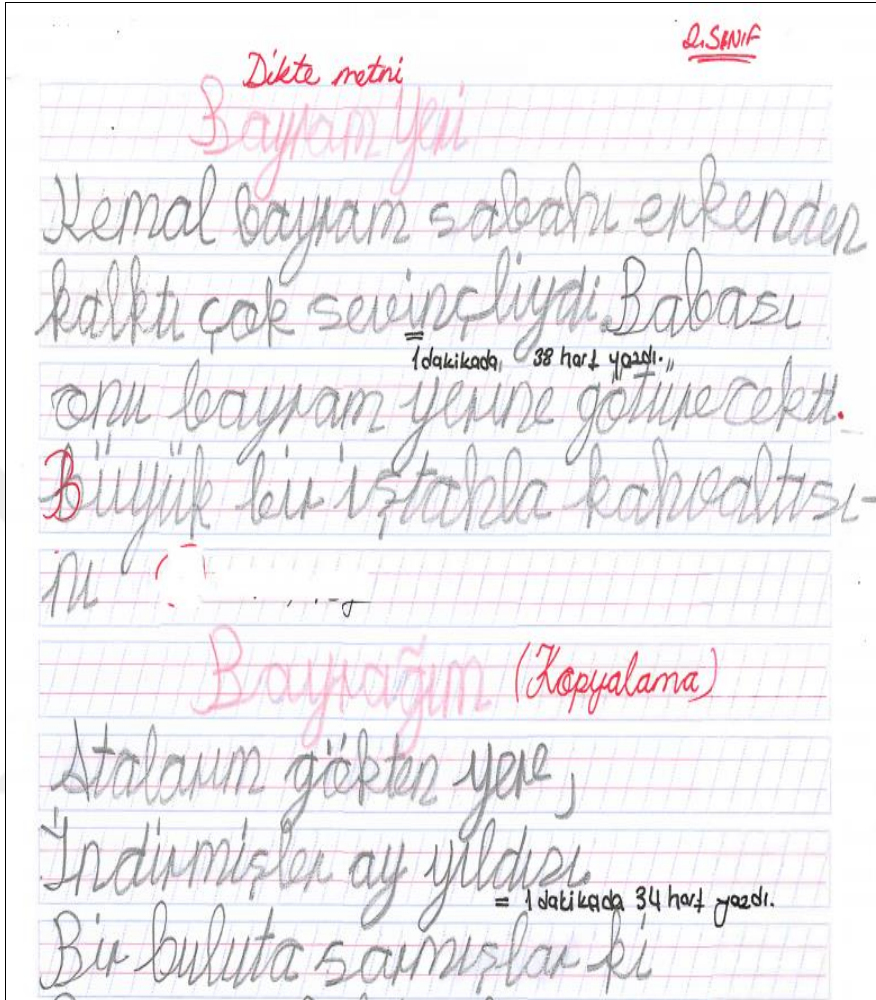 2. SINIF
Dikte metni
Bayram Yeri
Kemal bayram sabahı erkenden
kalktı çok sevinçliydi. Babası
= 1 dakikada, 38 harf yazdı.,,
onu bayram yerine götürecekti.
Büyük bir iştahla kahvaltısı-
nı
Bayrağım (Kopyalama)
Atalarım gökten yere,
İndirmişler ay yıldızı.
= 1 dakikada 34 harf yazdı.
Bir buluta sarmışlar ki